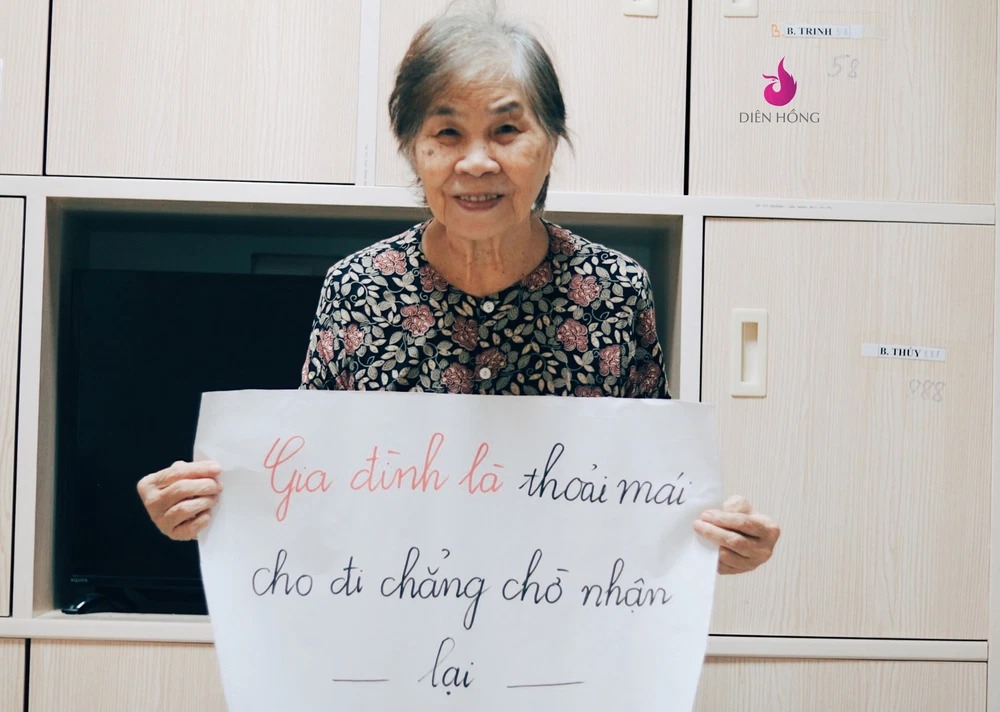 B. TRINH
58
DIÊN HỒNG
B. THỦY
888
Gia đình là thoải mái
cho đi chẳng chờ nhận
lại